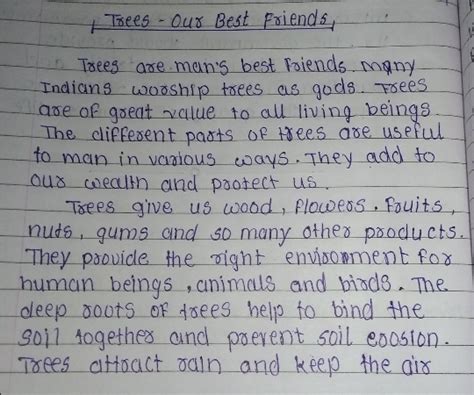 Trees - Our Best Friends
Trees are man's best friends. Many
Indians worship trees as gods. Trees
are of great value to all living beings.
The different parts of trees are useful
to man in various ways. They add to
our wealth and protect us.
Trees give us wood, flowers. Fruits,
nuts, gums and so many other products.
They provide the right environment for
human beings, animals and birds. The
deep roots of trees help to bind the
soil together and prevent soil erosion.
Trees attract rain and keep the air